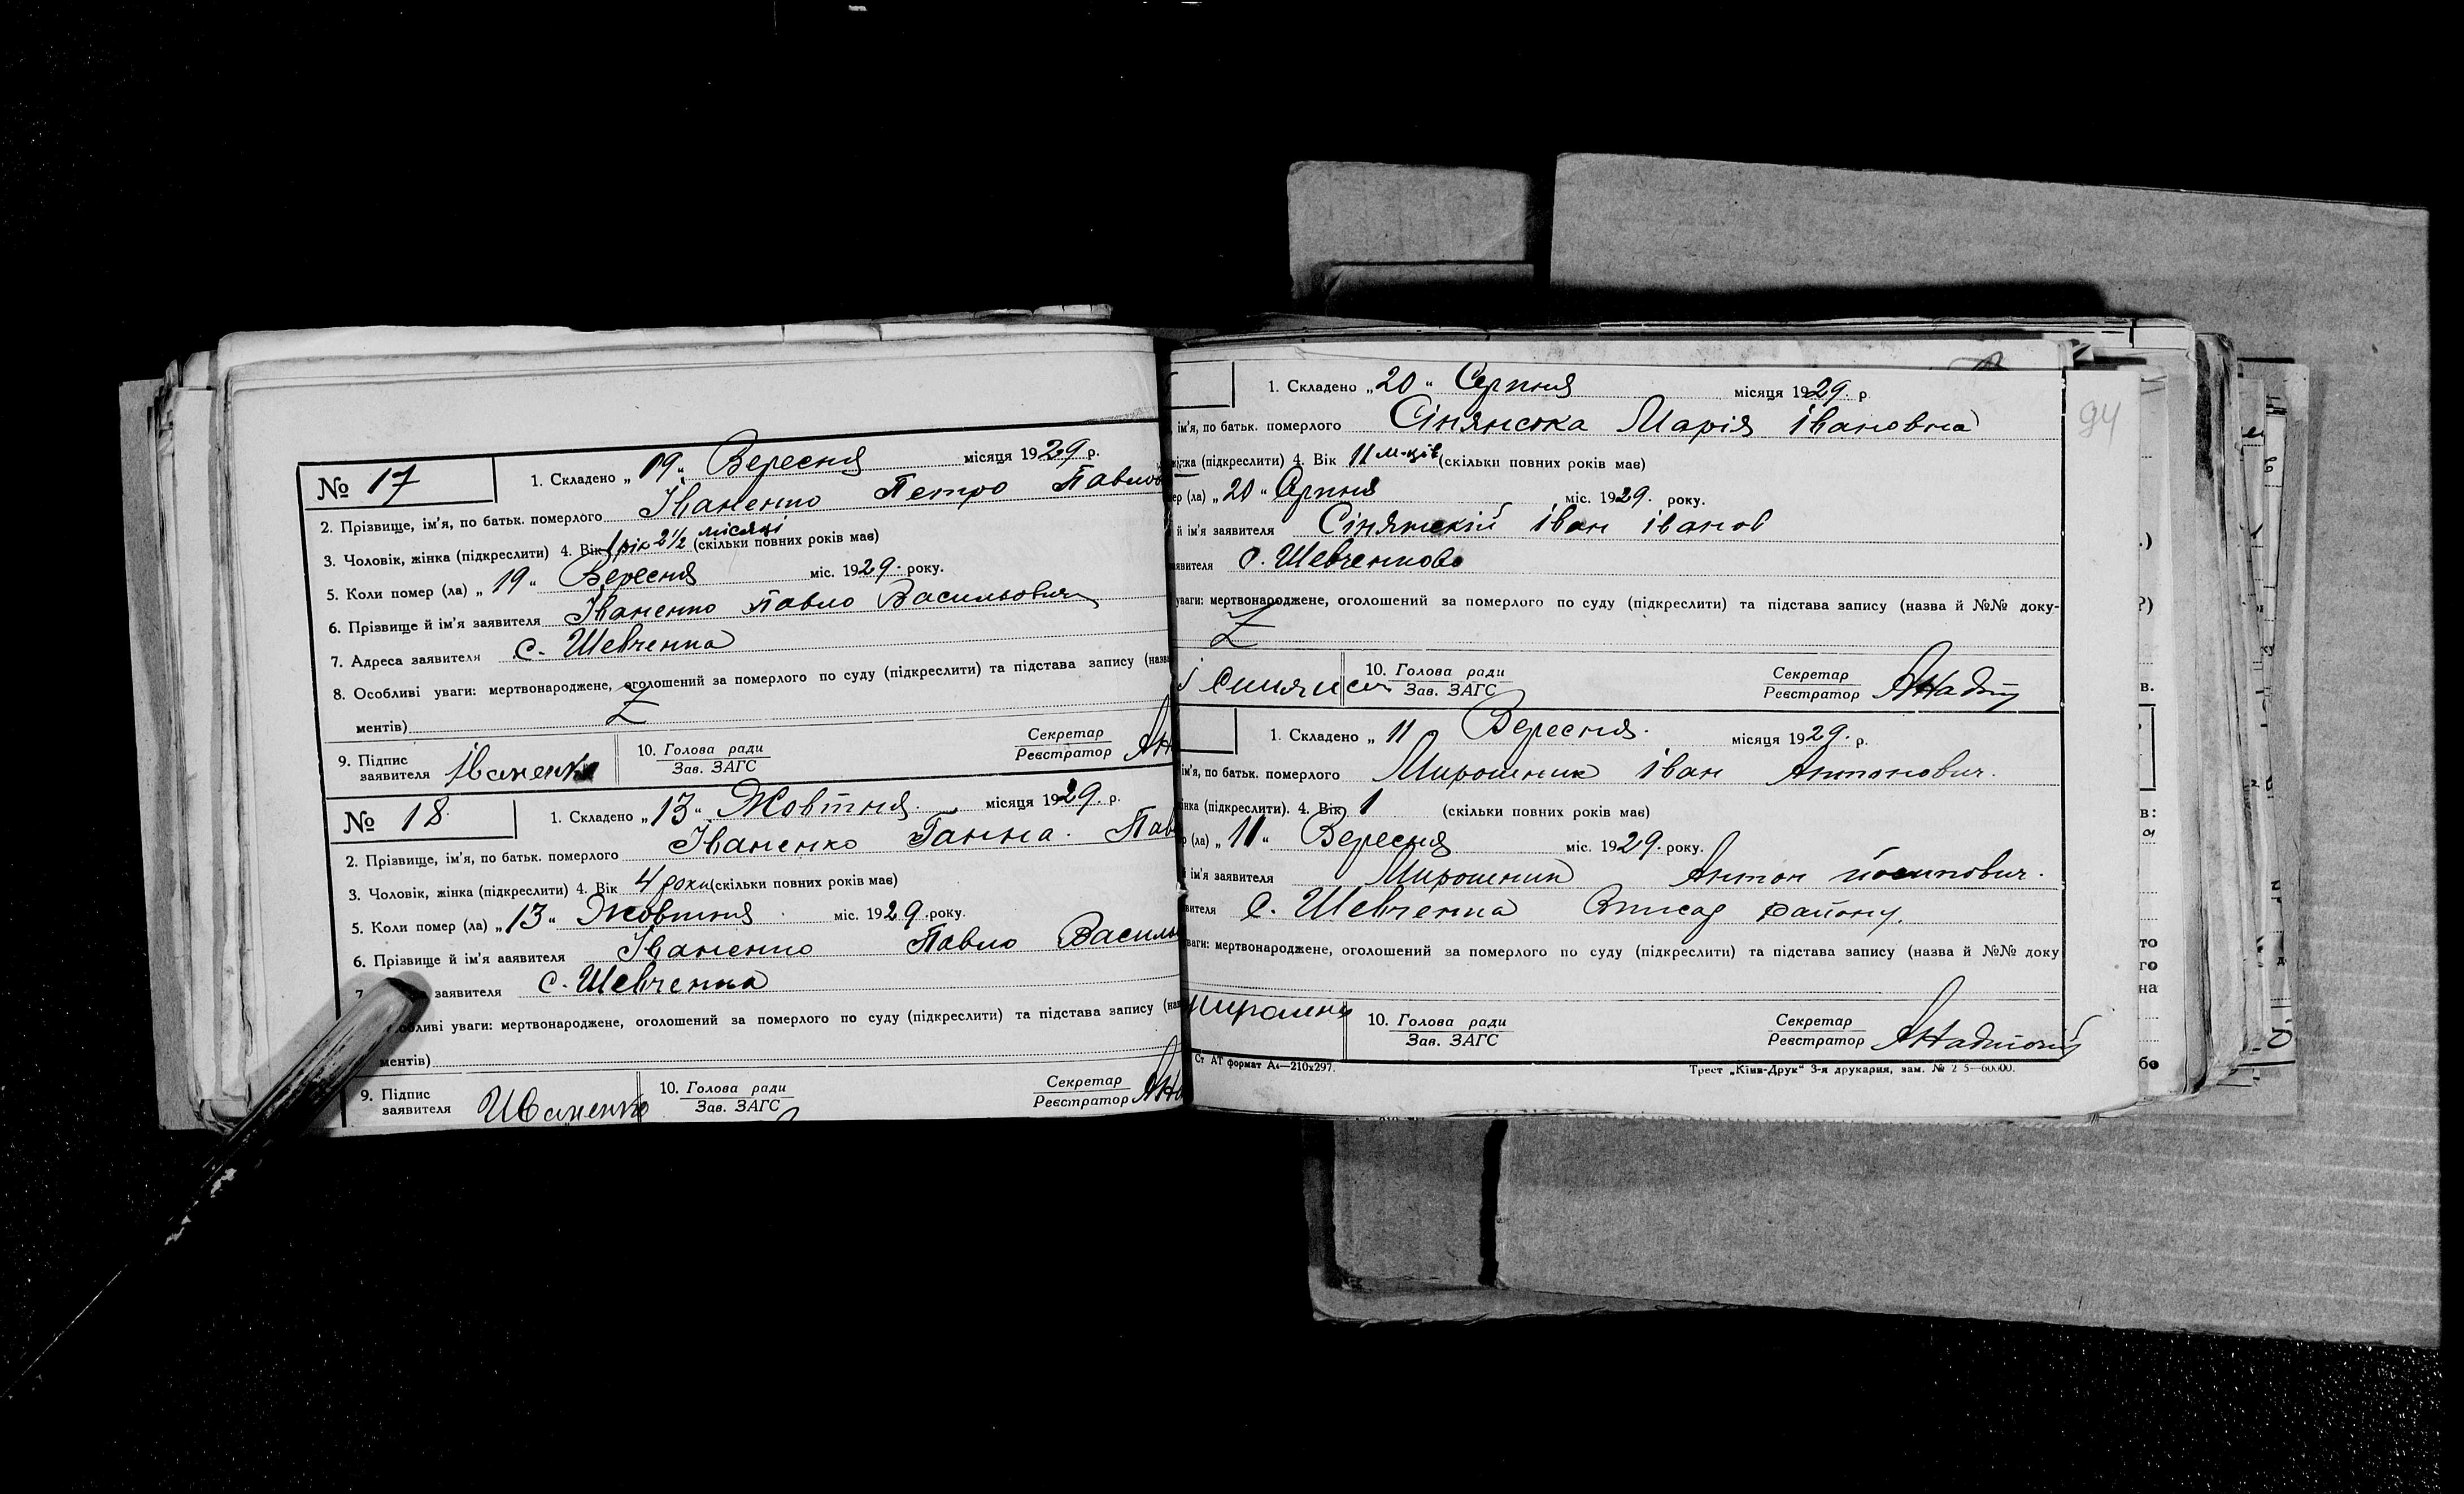 № 17
1. Складено „19“ Вересня місяця 1929 р.
2. Прізвище, ім'я, по батьк. померлого Іваненко Петро Павлов
3. Чоловік, жінка (підкреслити) 4. Вік 1 рік 2½ місяці (скільки повних років має)
5. Коли помер (ла) „19“ Вересня міс. 1929. року.
6. Прізвище й ім'я заявителя Іваненко Павло Васильович
7. Адреса заявителя с. Шевченка
8. Особливі уваги: мертвонароджене, оголошений за померлого по суду (підкреслити) та підстава запису (назва
ментів) Z
9. Підпис заявителя Іваненко
10. Голова ради
Зав. ЗАГС
Секретар
Реєстратор
№ 18.
1. Складено „13“ Жовтня. місяця 1929. р.
2. Прізвище, ім'я, по батьк. померлого Іваненко Ганна. Пав
3. Чоловік, жінка (підкреслити) 4. Вік 4 роки (скільки повних років має)
5. Коли помер (ла) „13“ Жовтня міс. 1929. року.
6. Прізвище й ім'я заявителя Іваненко Павло Василь
7. заявителя с. Шевченка
обливі уваги: мертвонароджене, оголошений за померлого по суду (підкреслити) та підстава запису (наз
ментів)
9. Підпис заявителя Иваненко
10. Голова ради
Зав. ЗАГС
Секретар
Реєстратор
94
1. Складено „20“ Серпня місяця 1929. р.
ім'я, по батьк. померлого Сінянська Марія івановна
жінка (підкреслити) 4. Вік 11 м-ців (скільки повних років має)
ер (ла) „20“ Серпня міс. 1929. року.
й ім'я заявителя Сінянский іван іванов
заявителя с. Шевченково
уваги: мертвонароджене, оголошений за померлого по суду (підкреслити) та підстава запису (назва й №№ доку-
Z
10. Голова ради
Зав. ЗАГС
Секретар
Реєстратор
1. Складено „11 Вересня. місяця 1929. р.
ім'я, по батьк. померлого Мирошник іван Антонович.
інка (підкреслити). 4. Вік 1 (скільки повних років має)
р (ла) „11“ Вересня міс. 1929. року.
й ім'я заявителя Мирошник Антон йосипович.
вителя с. Шевченка району.
ваги: мертвонароджене, оголошений за померлого по суду (підкреслити) та підстава запису (назва й №№ доку
10. Голова ради
Зав. ЗАГС
Секретар
Реєстратор
Ст АТ формат А4—210х297.
Трест „Київ-Друк“ 3-я друкарня, зам. №